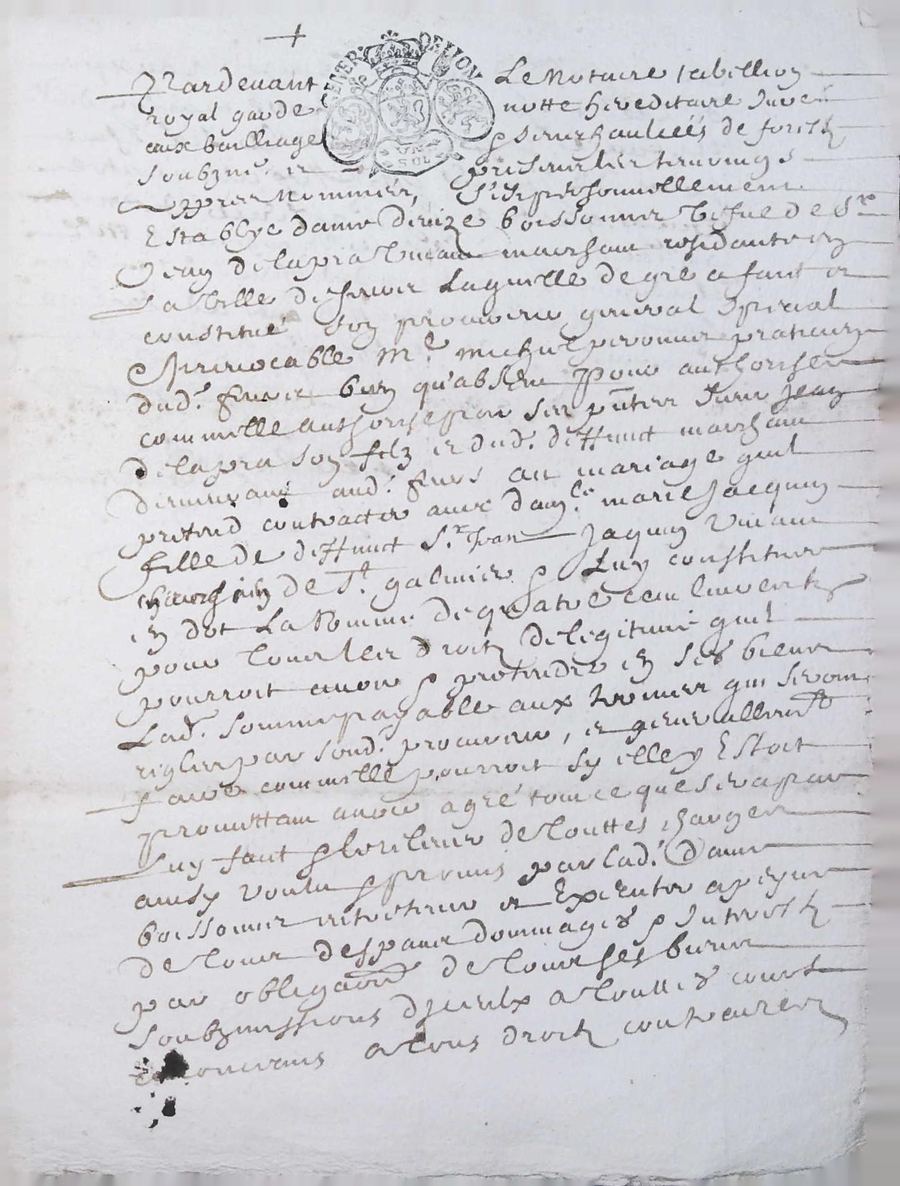 GENER DE LYON
UN SOL
Pardevant Le Notaire tabellion
royal garde notte hereditaire
aux bailliage & senechaulcées de forestz
soubzné et présent les tesmoings
appres nommés, s'est personnellement
Establye dame Benize boissonnier vefve de Sr
Jean delapra vivant marchant residante en
la ville de Laquelle de gré a faict et
constitué son procureur general special
& irrevocable Me michel peronnier praticien
dudt bien qu'absent pour authoriser
comme elle authorise par ses pntes sieur Jean
delapra son filz et dudt deffunct marchant
demeurant audt au mariage quil
pretend contracter avec damlle marie Jacquin
fille de deffunct Sr Jean Jaquin vivant
de St galmier & Luy constituer
en dot La somme de quatre cent livres
pour tous les droitz de legitime quil
pourroit avoir & pretendre en ses biens
Ladt somme payable aux termes qui seront
reglés par sondt procureur, et gnerallement
faire comme elle pourroit sy elle y Estoit
promettant avoir agré tout ce que sera par
Luy faict & le relever de touttes charges
ainsy voulu & promis par ladt Dame
boissonnier et Executer a peyne
de tous despans dommages & Interestz
par obligaon de tous ses biens
soubzmissions d'yceulx a touttes cours
a tous droitz contraires